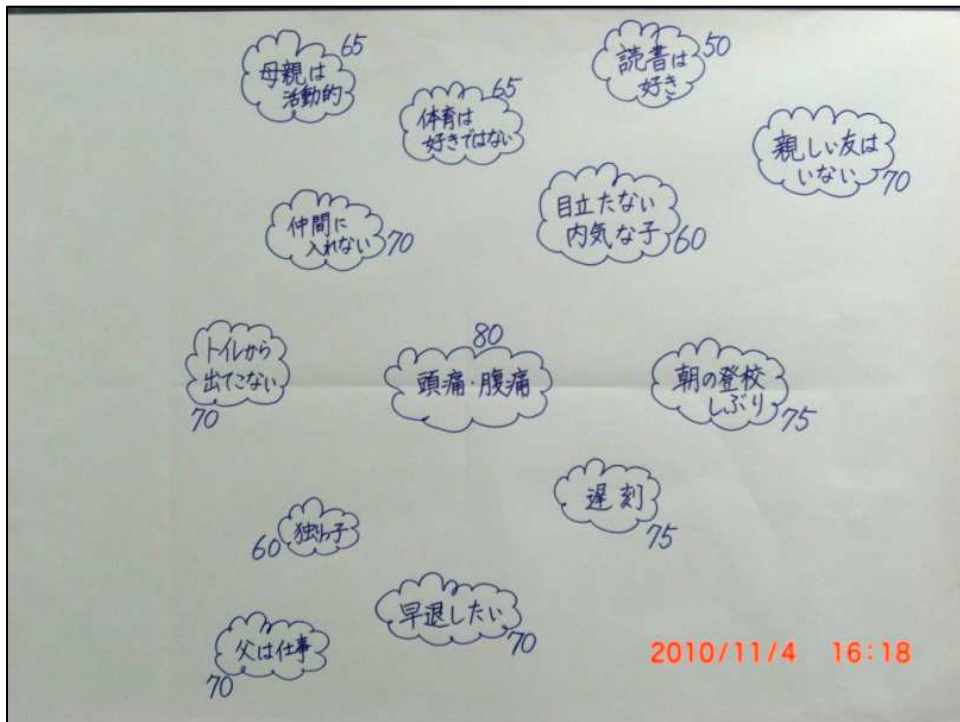 65
母親は
活動的
65
体育は
好きではない
50
読書は
好き
親しい友は
いない
70
仲間に
入れない
70
目立たない
内気な子
60
トイレから
出てこない
70
80
頭痛・腹痛
朝の登校
しぶり
75
遅刻
75
60
独りっ子
早退したい
70
父は仕事
70
2010/11/4 16:18